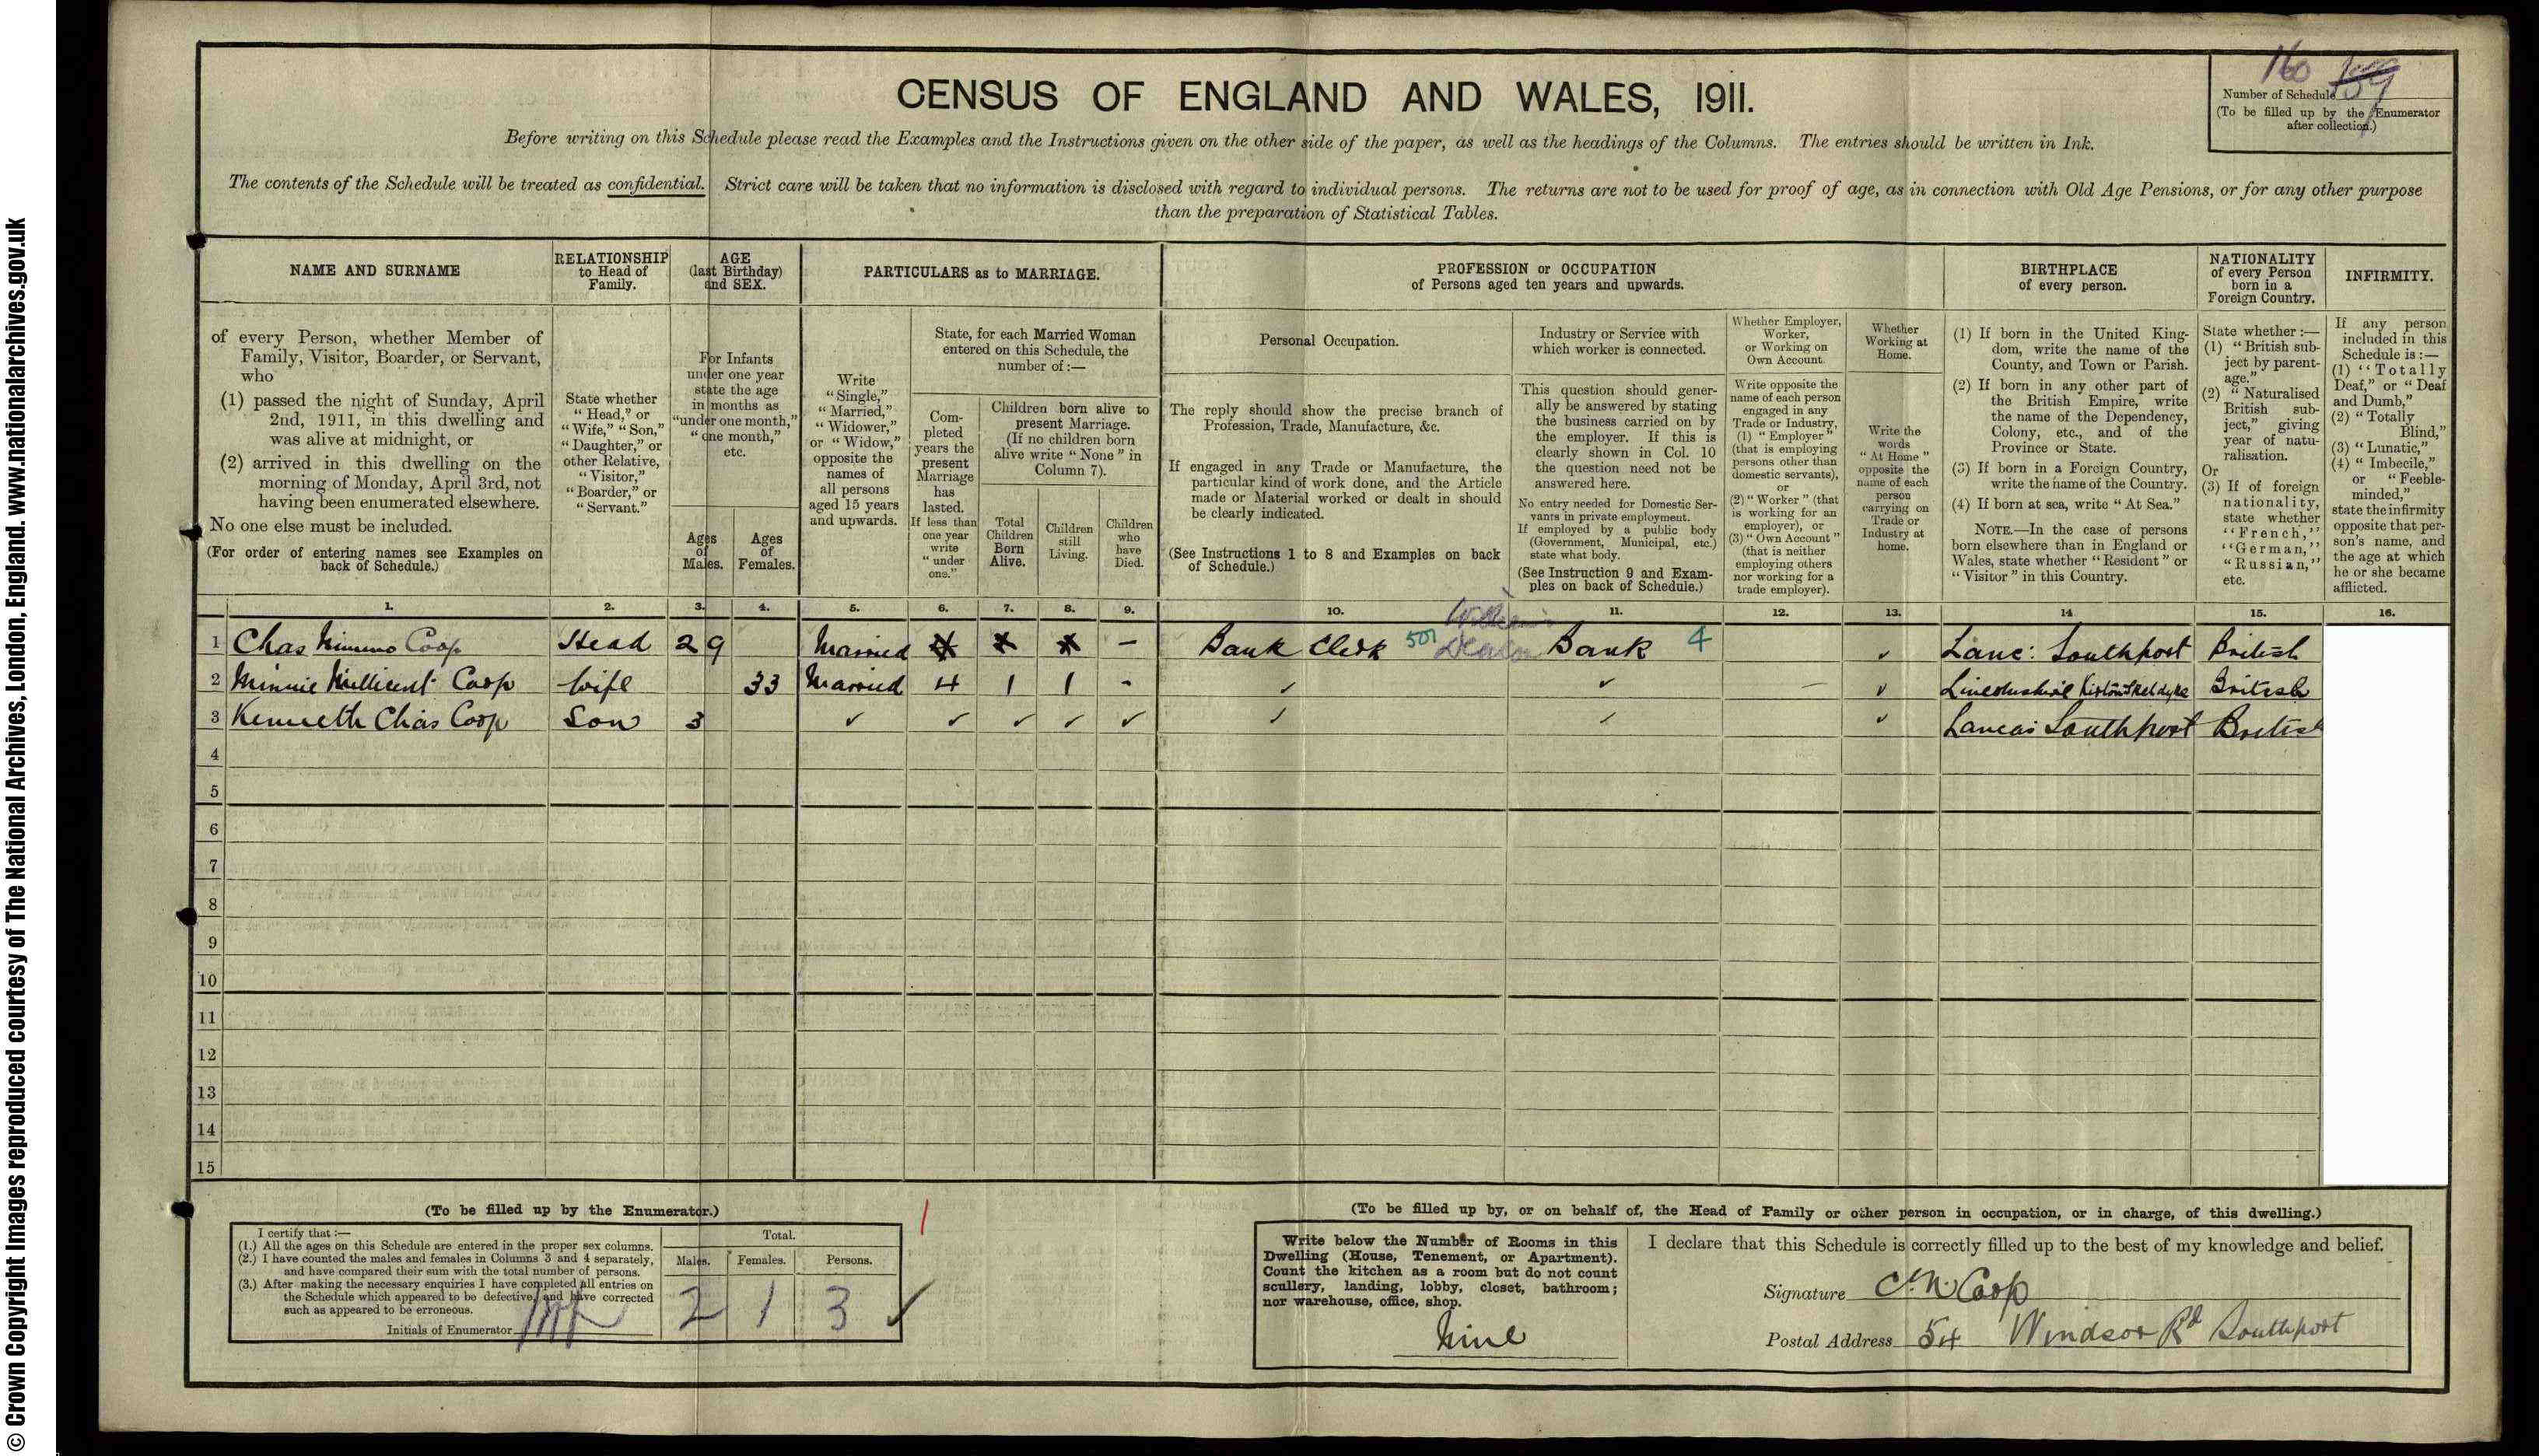 © Crown Copyright Images reproduced courtesy of The National Archives, London, England. www.nationalarchives.gov.uk
CENSUS OF ENGLAND AND WALES, 1911.
160 159
Number of Schedule
(To be filled up by the Enumerator
after collection.)
Before writing on this Schedule please read the Examples and the Instructions given on the other side of the paper, as well as the headings of the Columns. The entries should be written in Ink.
The contents of the Schedule will be treated as confidential. Strict care will be taken that no information is disclosed with regard to individual persons. The returns are not to be used for proof of age, as in connection with Old Age Pensions, or for any other purpose
than the preparation of Statistical Tables.
NAME AND SURNAME
of every Person, whether Member of
Family, Visitor, Boarder, or Servant,
who
(1) passed the night of Sunday, April
2nd, 1911, in this dwelling and
was alive at midnight, or
(2) arrived in this dwelling on the
morning of Monday, April 3rd, not
having been enumerated elsewhere.
No one else must be included.
(For order of entering names see Examples on
back of Schedule.)
RELATIONSHIP
to Head of
Family.
State whether
"Head," or
"Wife," "Son,"
"Daughter," or
other Relative,
"Visitor,"
"Boarder," or
"Servant."
AGE
(last Birthday)
and SEX.
For Infants
under one year
state the age
in months as
"under one month,"
"one month,"
etc.
Ages
of
Males.
Ages
of
Females.
PARTICULARS as to MARRIAGE.
Write
"Single,"
"Married,"
"Widower,"
or "Widow,"
opposite the
names of
all persons
aged 15 years
and upwards.
State, for each Married Woman
entered on this Schedule, the
number of :—
Com-
pleted
years the
present
Marriage
has
lasted.
If less than
one year
write
"under
one."
Children born alive to
present Marriage.
(If no children born
alive write "None" in
Column 7).
Total
Children
Born
Alive.
Children
still
Living.
Children
who
have
Died.
PROFESSION or OCCUPATION
of Persons aged ten years and upwards.
Personal Occupation.
The reply should show the precise branch of
Profession, Trade, Manufacture, &c.
If engaged in any Trade or Manufacture, the
particular kind of work done, and the Article
made or Material worked or dealt in should
be clearly indicated.
(See Instructions 1 to 8 and Examples on back
of Schedule.)
Industry or Service with
which worker is connected.
This question should gener-
ally be answered by stating
the business carried on by
the employer. If this is
clearly shown in Col. 10
the question need not be
answered here.
No entry needed for Domestic Ser-
vants in private employment.
If employed by a public body
(Government, Municipal, etc.)
state what body.
(See Instruction 9 and Exam-
ples on back of Schedule.)
Whether Employer,
Worker,
or Working on
Own Account.
Write opposite the
name of each person
engaged in any
Trade or Industry,
(1) "Employer"
(that is employing
persons other than
domestic servants),
or
(2) "Worker" (that
is working for an
employer), or
(3) "Own Account"
(that is neither
employing others
nor working for a
trade employer).
Whether
Working at
Home.
Write the
words
"At Home"
opposite the
name of each
person
carrying on
Trade or
Industry at
home.
BIRTHPLACE
of every person.
(1) If born in the United King-
dom, write the name of the
County, and Town or Parish.
(2) If born in any other part of
the British Empire, write
the name of the Dependency,
Colony, etc., and of the
Province or State.
(3) If born in a Foreign Country,
write the name of the Country.
(4) If born at sea, write "At Sea."
NOTE.—In the case of persons
born elsewhere than in England or
Wales, state whether "Resident" or
"Visitor" in this Country.
NATIONALITY
of every Person
born in a
Foreign Country.
State whether :—
(1) "British sub-
ject by parent-
age."
(2) "Naturalised
British sub-
ject," giving
year of natu-
ralisation.
Or
(3) If of foreign
nationality,
state whether
"French,"
"German,"
"Russian,"
etc.
INFIRMITY.
If any person
included in this
Schedule is :—
(1) "Totally
Deaf," or "Deaf
and Dumb,"
(2) "Totally
Blind,"
(3) "Lunatic,"
(4) "Imbecile,"
or "Feeble-
minded,"
state the infirmity
opposite that per-
son's name, and
the age at which
he or she became
afflicted.
1. 2. 3. 4. 5. 6. 7. 8. 9. 10. 11. 12. 13. 14 15. 16.
1 Chas Nimmo Coop Head 29 Married – Bank Clerk 501 Bank 4 Lanc: Southport British
2 Minnie Millicent Coop Wife 33 Married 4 1 1 - Lincolnshire Kirton Skeldyke British
3 Kenneth Chas Coop Son 3 Lancas Southport British
4
5
6
7
8
9
10
11
12
13
14
15
(To be filled up by the Enumerator.)
I certify that :—
(1.) All the ages on this Schedule are entered in the proper sex columns.
(2.) I have counted the males and females in Columns 3 and 4 separately,
and have compared their sum with the total number of persons.
(3.) After making the necessary enquiries I have completed all entries on
the Schedule which appeared to be defective, and have corrected
such as appeared to be erroneous.
Initials of Enumerator
Total.
Males. Females. Persons.
2 1 3
1
(To be filled up by, or on behalf of, the Head of Family or other person in occupation, or in charge, of this dwelling.)
Write below the Number of Rooms in this
Dwelling (House, Tenement, or Apartment).
Count the kitchen as a room but do not count
scullery, landing, lobby, closet, bathroom;
nor warehouse, office, shop.
Nine
I declare that this Schedule is correctly filled up to the best of my knowledge and belief.
Signature C. N. Coop
Postal Address 54 Windsor Rd Southport